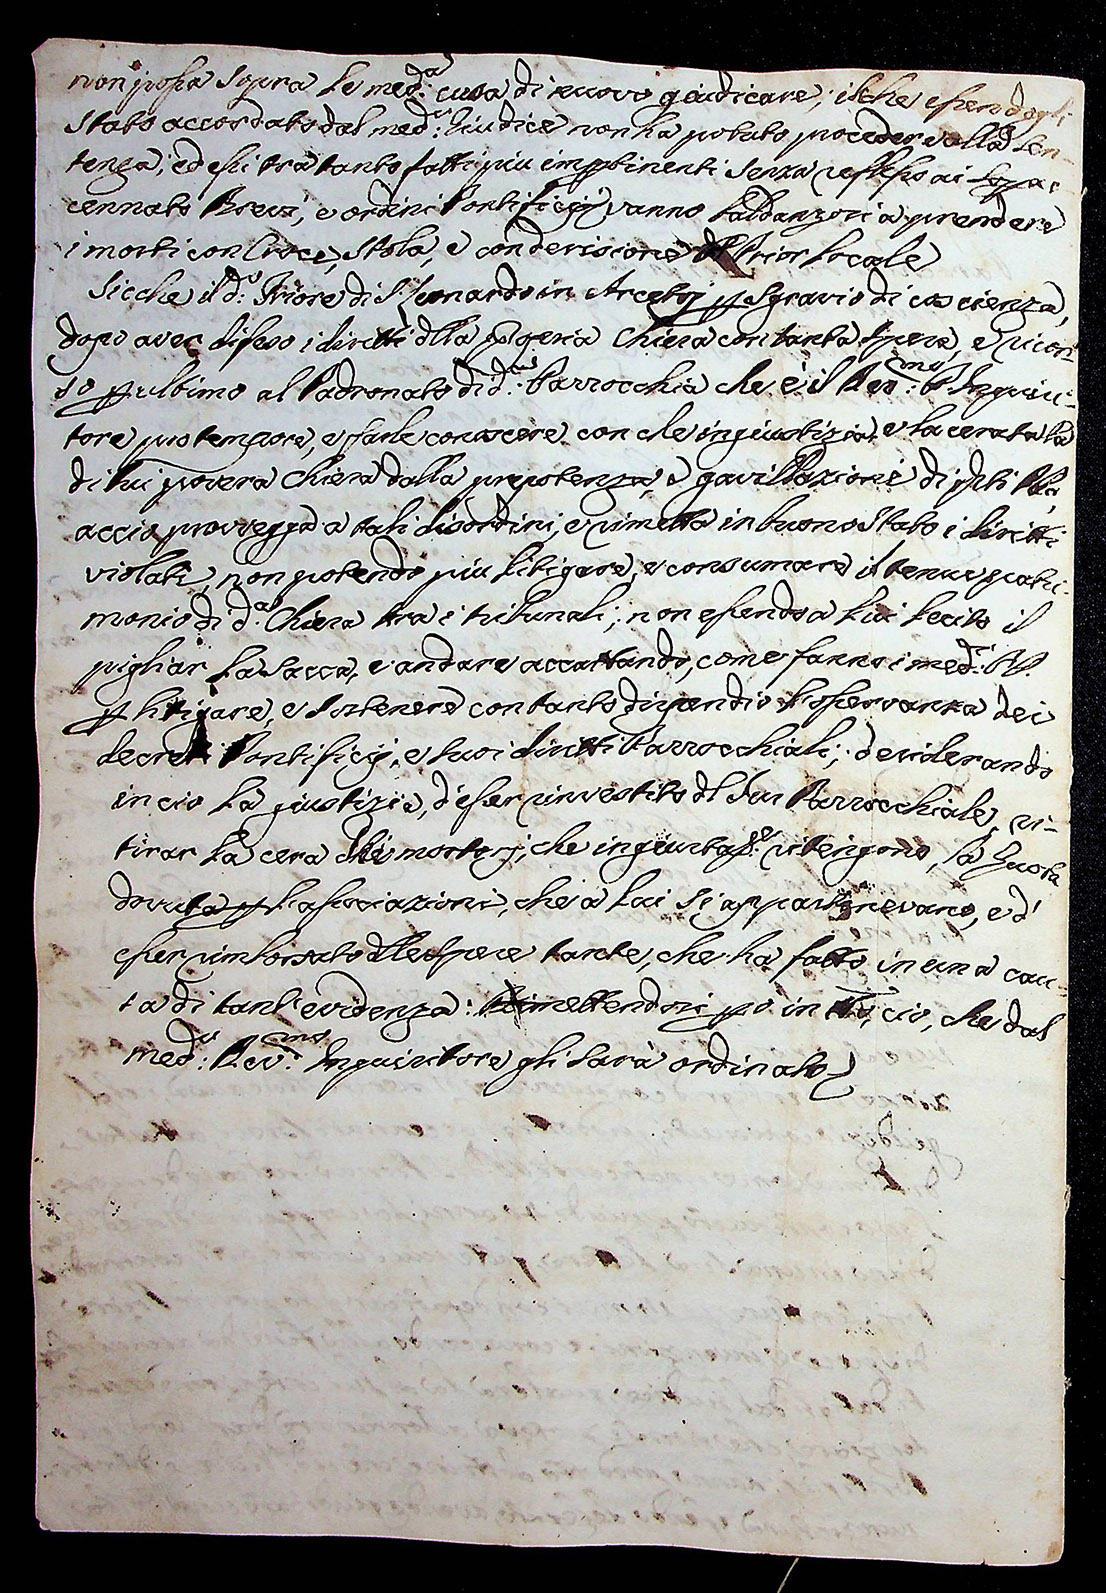 non possa sopra le med.a cusa di nuovo giudicare; il che essendogli
stato accordato dal med.o Giudice non ha potuto procedere alla Sen-
tenza, ed essi tra tanto fatti più impertinenti senza reflesso ai sopra
cennato Brevi, e ordini Pontificij vanno baldanzosi a prendere
i morti con Croce, Stola, e con derisione del Prior locale
Sicche il d.o Priore di S. Leonardo in Arcetrj p sgravio di coscienza,
dopo aver difeso i diritti dlla ppria Chiesa con tanta spesa, e ricor-
so p ultimo al Padronato di d.a Parrocchia che è il Rev.mo P. Inquisi-
tore pro tempore, e farle conoscere con che ingiustizia e lacerata la
di lui povera Chiesa dalla prepotenza, e gavillazione di pti PP.
accio provvegga a tali disordini, e rimetta in buono stato i diritti
violati, non potendo più litigare, e consumare il tenue patri-
monio di d.a Chiesa tra i tribunali; non essendo a lui lecito il
pigliar la sacca, e andare accattando, come fanno i med.i PP.
p litigare, e sostenere con tanto dispendio l'osservanza dei
decreti Pontificij, e suoi diritti Parrocchiali; desiderando
in cio la giustizia, d'esser rinvestito dl Ius Parrocchiale, ri-
tirar la cera dei mortorj, che ingiustam.te ritengono, la quota
dovuta p l'associazioni, che a lui si appartenevano, e d'
esser rimborsato dlle spese tante, che ha fatto in una cau-
sa di tant'evidenza: Rimettendosi po in tto cio, che dal
med.o Rev.mo Inquisitore gli sarà ordinato